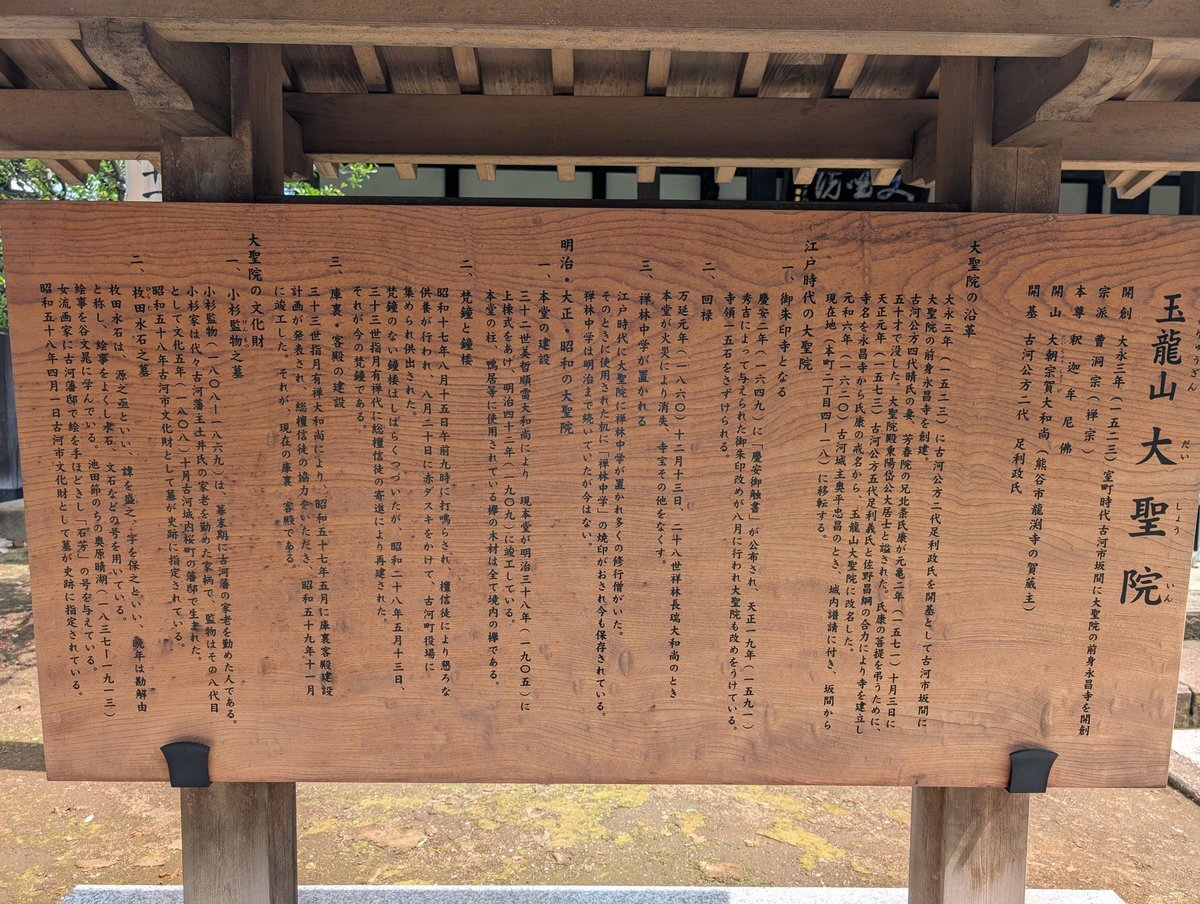 玉龍山 大聖院
だい しょう いん
開創 大永三年(一五二三)室町時代古河市坂間に大聖院の前身永昌寺を開創
宗派 曹洞宗(禅宗)
本尊 釈迦牟尼佛
開山 大朝宗賀大和尚(熊谷市龍渕寺の賀蔵主)
開基 古河公方二代 足利政氏
大聖院の沿革
大永三年(一五二三)に古河公方二代足利政氏を開基として古河市坂間に
大聖院の前身永昌寺を創建。
古河公方四代晴氏の妻、芳春院の兄北条氏康が元亀二年(一五七一)十月三日に
五十才で没した。大聖院殿東陽岱公大居士と謚された。氏康の菩提を弔うために、
天正元年(一五七三)古河公方五代足利義氏と佐野昌綱の合力により寺を建立し
寺名を永昌寺から氏康の戒名から、玉龍山大聖院に改名した。
元和六年(一六二〇)古河城主奥平忠昌のとき、城内譜請に付き、坂間から
現在地(本町二丁目四ー一八)に移転する。
江戸時代の大聖院
一、御朱印寺となる
慶安二年(一六四九)に「慶安御触書」が公布され、天正一九年(一五九一)
秀吉によって与えられた御朱印改めが八月に行われ大聖院も改めをうけている。
寺領一五石をさずけられる。
二、回禄
万延元年(一八六〇)十二月十三日、二十八世祥林長瑞大和尚のとき
本堂が火災により消失、寺宝その他をなくす。
三、禅林中学が置かれる
江戸時代に大聖院に禅林中学が置かれ多くの修行僧がいた。
そのときに使用された机に「禅林中学」の焼印がおされ今も保存されている。
禅林中学は明治まで続いていたが今はない。
明治・大正・昭和の大聖院
一、本堂の建設
三十二世美哲順雷大和尚により、現本堂が明治三十八年(一九〇五)に
上棟式をあげ、明治四十二年(一九〇九)に竣工している。
本堂の柱、鴨居等に使用されている欅の木材は全て境内の欅である。
二、梵鐘と鐘楼
昭和十七年八月十五日午前九時に打鳴らされ、檀信徒により懇ろな
供養が行われ、八月二十日に赤ダスキをかけて、古河町役場に
集められ供出された。
梵鐘のない鐘楼はしばらくつづいたが、昭和二十八年五月十三日、
三十三世指月有禅代に総檀信徒の寄進により再建された。
それが今の梵鐘である。
三、庫裏・客殿の建設
三十三世指月有禅大和尚により、昭和五十七年五月に庫裏客殿建設
計画が発表され、総檀信徒の協力をいただき、昭和五十九年十一月
に竣工した。それが、現在の庫裏 客殿である。
大聖院の文化財
一、小杉監物之墓
けんもつ
小杉監物(一八〇一ー一八六九)は、幕末期に古河藩の家老を勤めた人である。
小杉家は代々古河藩主土井氏の家老を勤めた家柄で、監物はその八代目
として文化五年(一八〇八)十月古河城内桜町の藩邸で生まれた。
昭和五十八年古河市文化財として墓が史跡に指定されている。
二、枚田水石之墓
ひらた
枚田水石は、源之亟といい、諱を盛之、字を保之といい、晩年は勘解由
と称し、絵事をよくし水石、文石などの号を用いている。
絵事を谷文晁に学んでいる。池田節のちの奥原晴湖(一八三七ー一九一三)
女流画家に古河藩邸で絵を手ほどきし「石芳」の号を与えている。
昭和五十八年四月一日古河市文化財として墓が史跡に指定されている。